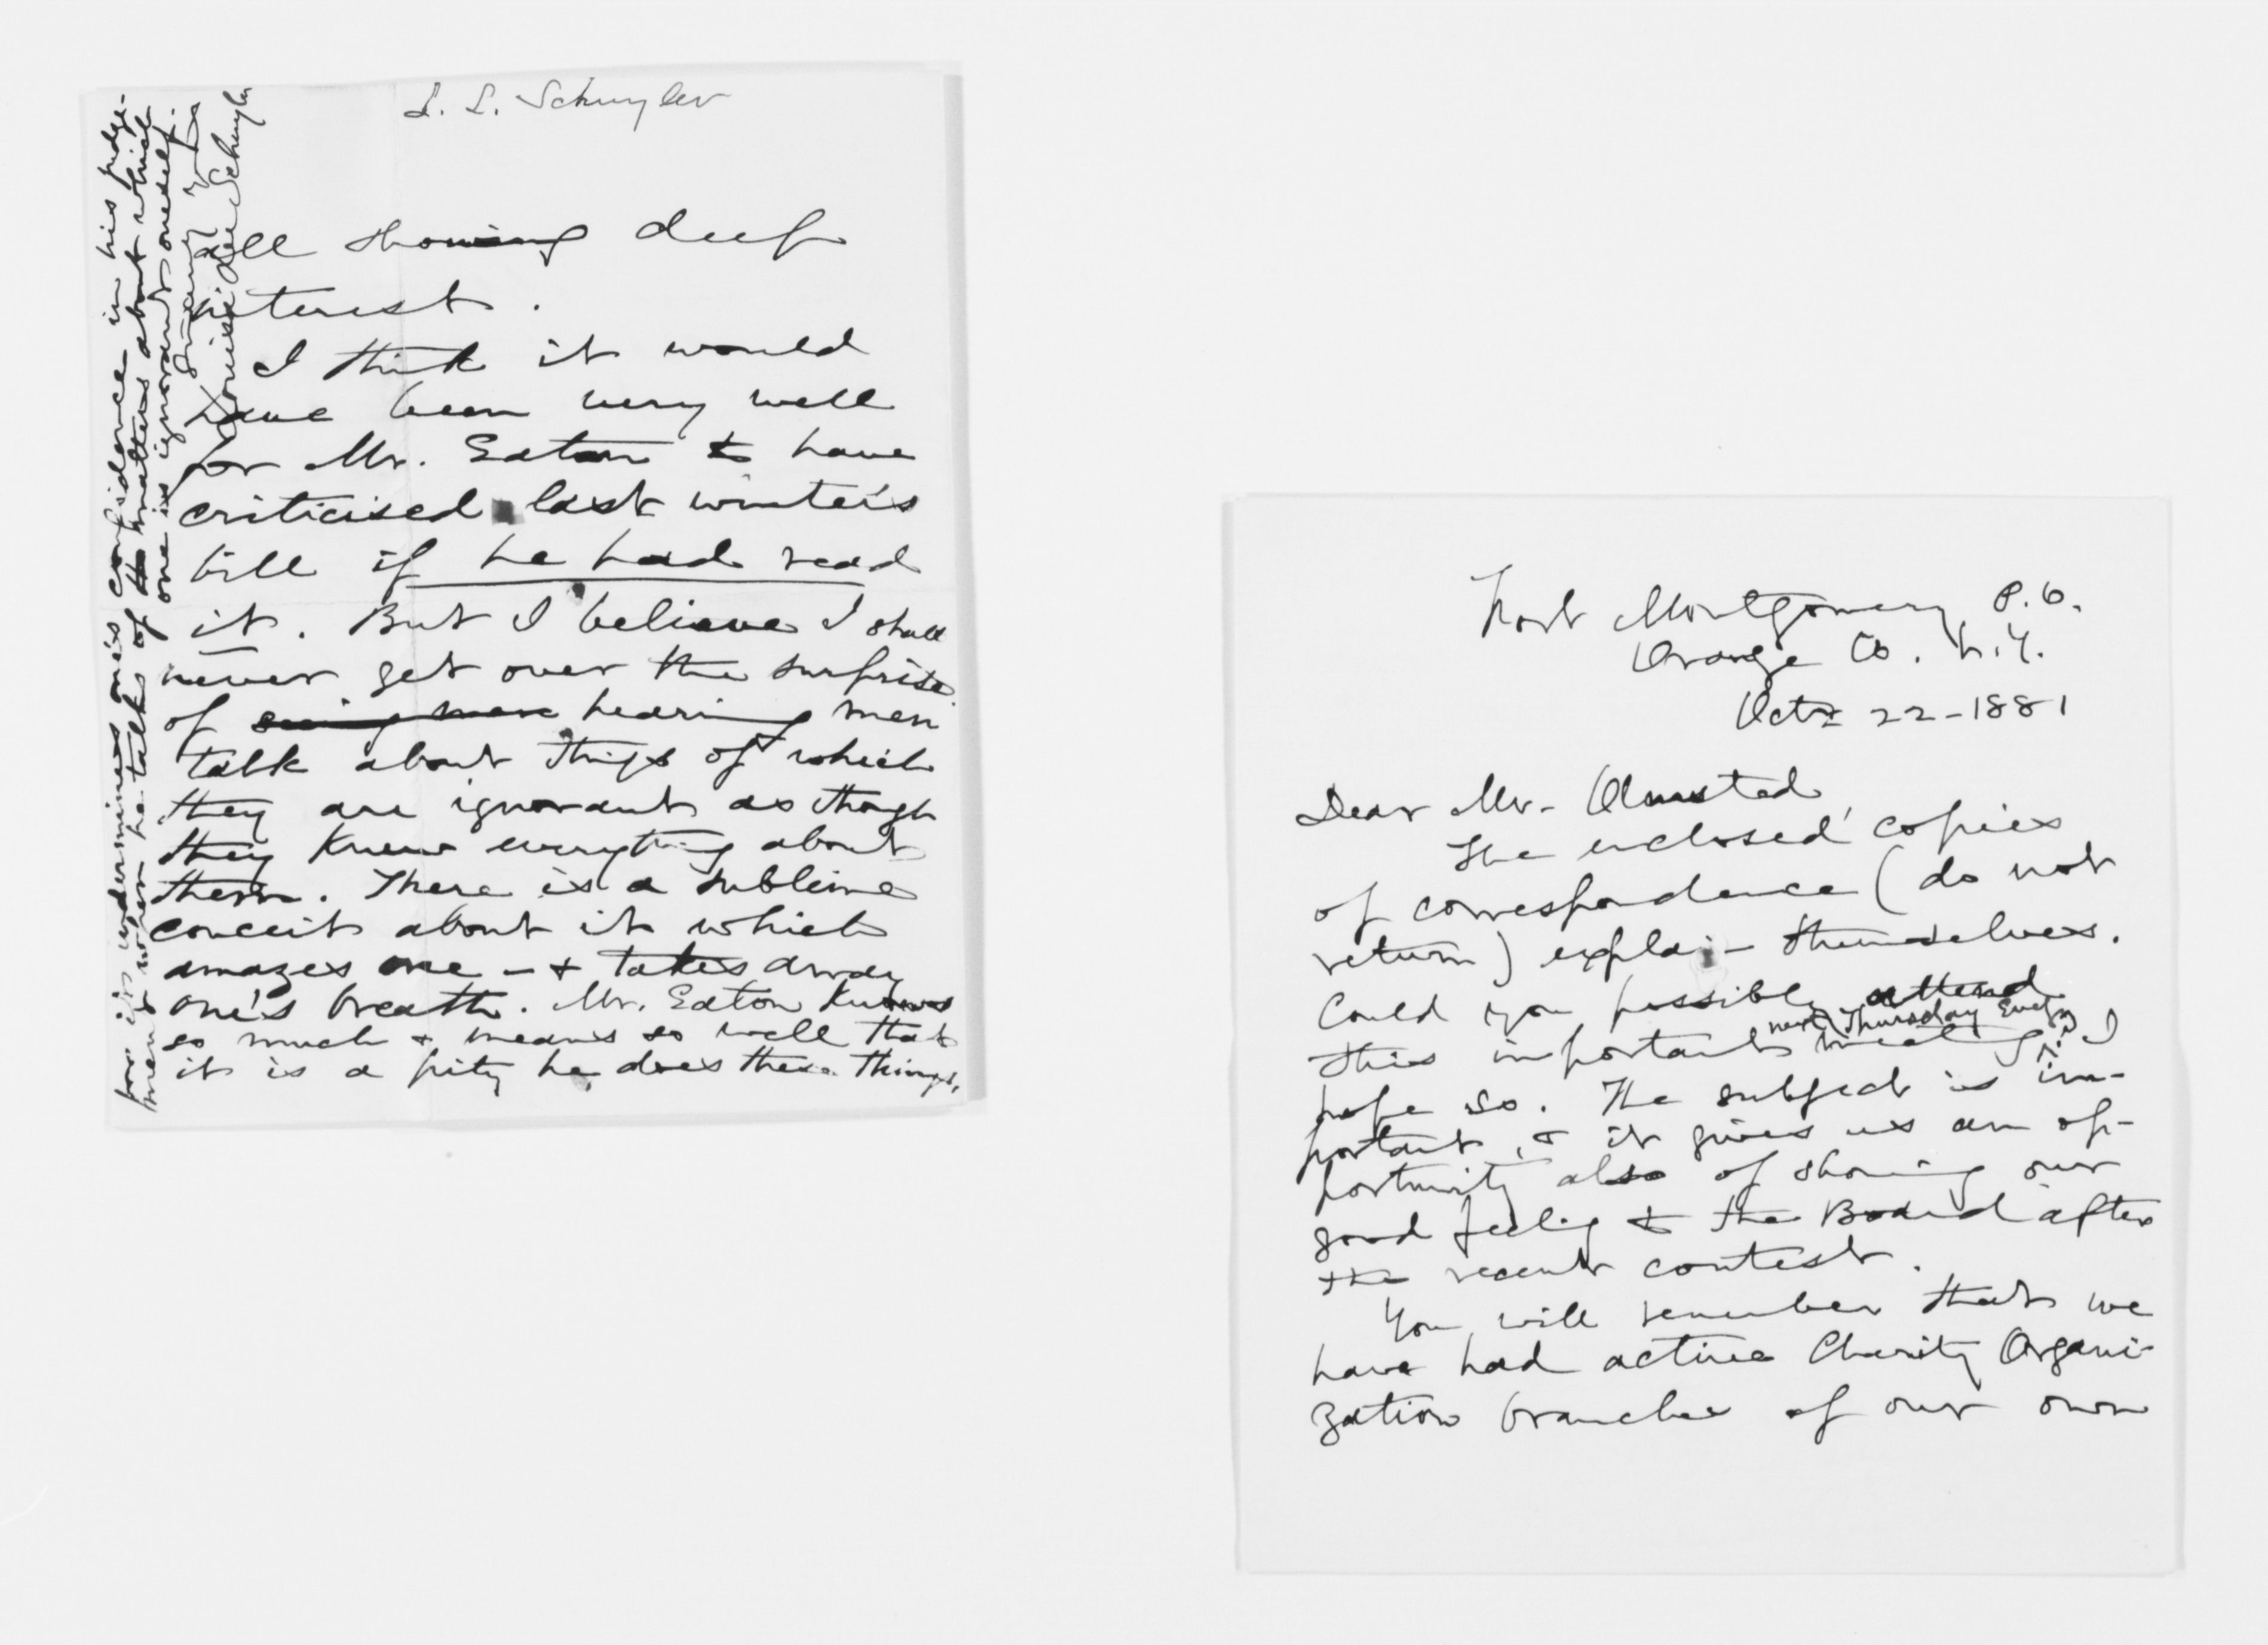 L. L. Schuyler
all showing deep
interest.
I think it would
have been very well
for Mr. Eaton to have
criticised last winter's
bill if he had read
it. But I believe I shall
never get over the surprise
of seeing men hearing men
talk about things of which
they are ignorant as though
they knew everything about
them. There is a sublime
conceit about it which
amazes one - & takes away
one's breath. Mr. Eaton knows
so much & means so well that
it is a pity he does these things,
for it undermines one's confidence in his judge-
ment when he talks of the matters about which
one is ignorant oneself.
Sincerely yrs
Louisa Lee Schuyler
Fort Montgomery P.O.
Orange Co. N.Y.
Octr 22-1881
Dear Mr. Olmsted,
The enclosed copies
of correspondence (do not
return) explain themselves.
Could you possibly attend
this important meeting next Thursday Eveg? I
hope so. The subject is im-
portant, & it gives us an op-
portunity also of showing our
good feeling to the Board after
the recent contest.
You will remember that we
have had active Charity Organi-
zation branches of our own